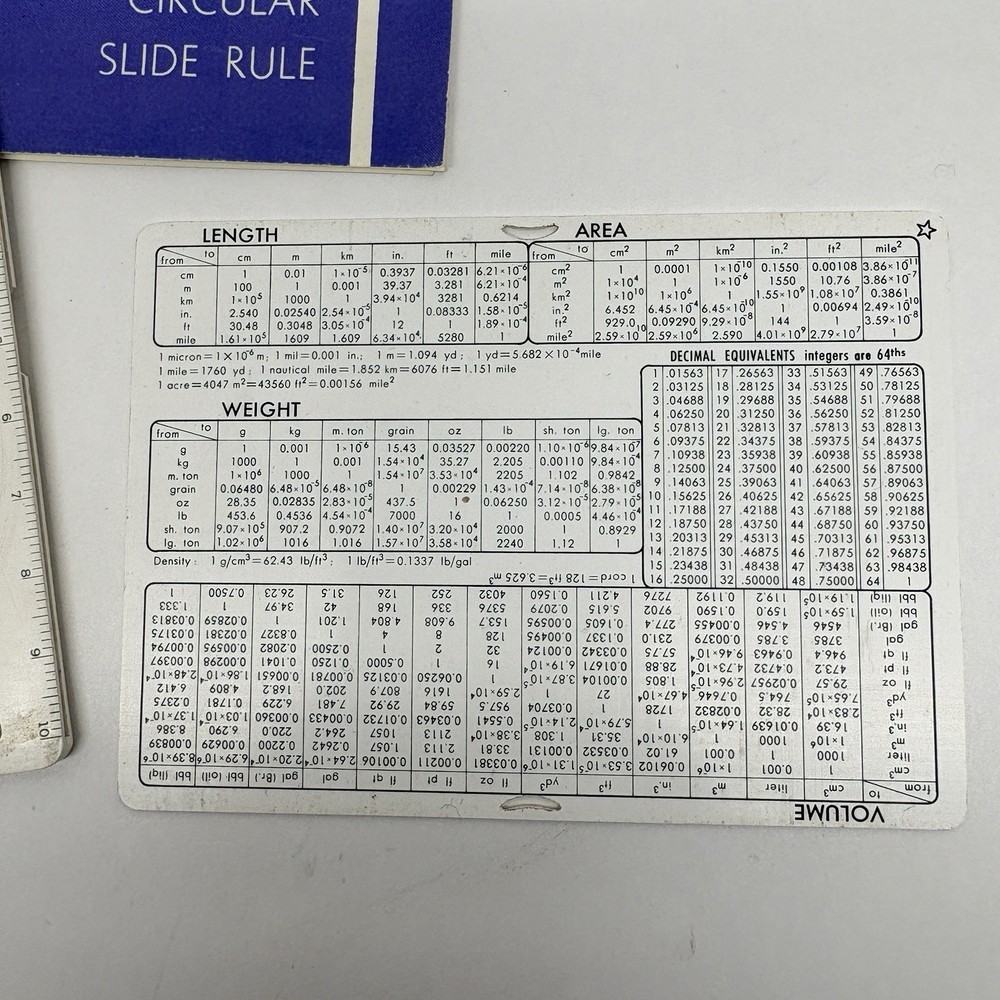 CIRCULAR
SLIDE RULE
6
7
8
9
10
LENGTH
from to cm m km in. ft mile
cm 1 0.01 1×10⁻⁵ 0.3937 0.03281 6.21×10⁻⁶
m 100 1 0.001 39.37 3.281 6.21×10⁻⁴
km 1×10⁵ 1000 1 3.94×10⁴ 3281 0.6214
in. 2.540 0.02540 2.54×10⁻⁵ 1 0.08333 1.58×10⁻⁵
ft 30.48 0.3048 3.05×10⁻⁴ 12 1 1.89×10⁻⁴
mile 1.61×10⁵ 1609 1.609 6.34×10⁴ 5280 1
AREA
from to cm² m² km² in.² ft² mile²
cm² 1 0.0001 1×10⁻¹⁰ 0.1550 0.00108 3.86×10⁻¹¹
m² 1×10⁴ 1 1×10⁻⁶ 1550 10.76 3.86×10⁻⁷
km² 1×10¹⁰ 1×10⁶ 1 1.55×10⁹ 1.08×10⁷ 0.3861
in.² 6.452 6.45×10⁻⁴ 6.45×10⁻¹⁰ 1 0.00694 2.49×10⁻¹⁰
ft² 929.0 0.09290 9.29×10⁻⁸ 144 1 3.59×10⁻⁸
mile² 2.59×10¹⁰ 2.59×10⁶ 2.590 4.01×10⁹ 2.79×10⁷ 1
1 micron=1×10⁻⁶ m; 1 mil=0.001 in.; 1 m=1.094 yd; 1 yd=5.682×10⁻⁴mile
1 mile=1760 yd; 1 nautical mile=1.852 km=6076 ft=1.151 mile
1 acre=4047 m²=43560 ft²=0.00156 mile²
DECIMAL EQUIVALENTS integers are 64ths
1 .01563 17 .26563 33 .51563 49 .76563
2 .03125 18 .28125 34 .53125 50 .78125
3 .04688 19 .29688 35 .54688 51 .79688
4 .06250 20 .31250 36 .56250 52 .81250
5 .07813 21 .32813 37 .57813 53 .82813
6 .09375 22 .34375 38 .59375 54 .84375
7 .10938 23 .35938 39 .60938 55 .85938
8 .12500 24 .37500 40 .62500 56 .87500
9 .14063 25 .39063 41 .64063 57 .89063
10 .15625 26 .40625 42 .65625 58 .90625
11 .17188 27 .42188 43 .67188 59 .92188
12 .18750 28 .43750 44 .68750 60 .93750
13 .20313 29 .45313 45 .70313 61 .95313
14 .21875 30 .46875 46 .71875 62 .96875
15 .23438 31 .48438 47 .73438 63 .98438
16 .25000 32 .50000 48 .75000 64 1
WEIGHT
from to g kg m. ton grain oz lb sh. ton lg. ton
g 1 0.001 1×10⁻⁶ 15.43 0.03527 0.00220 1.10×10⁻⁶ 9.84×10⁻⁷
kg 1000 1 0.001 1.54×10⁴ 35.27 2.205 0.00110 9.84×10⁻⁴
m. ton 1×10⁶ 1000 1 1.54×10⁷ 3.53×10⁴ 2205 1.102 0.9842
grain 0.06480 6.48×10⁻⁵ 6.48×10⁻⁸ 1 0.00229 1.43×10⁻⁴ 7.14×10⁻⁸ 6.38×10⁻⁸
oz 28.35 0.02835 2.83×10⁻⁵ 437.5 1 0.06250 3.12×10⁻⁵ 2.79×10⁻⁵
lb 453.6 0.4536 4.54×10⁻⁴ 7000 16 1 0.0005 4.46×10⁻⁴
sh. ton 9.07×10⁵ 907.2 0.9072 1.40×10⁷ 3.20×10⁴ 2000 1 0.8929
lg. ton 1.02×10⁶ 1016 1.016 1.57×10⁷ 3.58×10⁴ 2240 1.12 1
Density: 1 g/cm³=62.43 lb/ft³; 1 lb/ft³=0.1337 lb/gal
VOLUME
from to cm³ liter m³ in.³ ft³ yd³ fl oz fl pt fl qt gal gal (Br.) bbl (oil) bbl (liq)
cm³ 1 0.001 1×10⁻⁶ 0.06102 3.53×10⁻⁵ 1.31×10⁻⁶ 0.03381 0.00211 0.00106 2.64×10⁻⁴ 2.20×10⁻⁴ 6.29×10⁻⁶ 8.39×10⁻⁶
liter 1000 1 0.001 61.02 0.03532 0.00131 33.81 2.113 1.057 0.2642 0.2200 0.00629 0.00839
m³ 1×10⁶ 1000 1 6.10×10⁴ 35.31 1.308 3.38×10⁴ 2113 1057 264.2 220.0 6.290 8.386
in.³ 16.39 0.01639 1.64×10⁻⁵ 1 5.79×10⁻⁴ 2.14×10⁻⁵ 0.5541 0.03463 0.01732 0.00433 0.00360 1.03×10⁻⁴ 1.37×10⁻⁴
ft³ 2.83×10⁴ 28.32 0.02832 1728 1 0.03704 957.5 59.84 29.92 7.481 6.229 0.1781 0.2375
yd³ 7.65×10⁵ 764.5 0.7646 4.67×10⁴ 27 1 2.59×10⁴ 1616 807.9 202.0 168.2 4.809 6.412
fl oz 29.57 0.02957 2.96×10⁻⁵ 1.805 0.00104 3.87×10⁻⁵ 1 0.06250 0.03125 0.00781 0.00651 1.86×10⁻⁴ 2.48×10⁻⁴
fl pt 473.2 0.4732 4.73×10⁻⁴ 28.88 0.01671 6.19×10⁻⁴ 16 1 0.5000 0.1250 0.1041 0.00298 0.00397
fl qt 946.4 0.9463 9.46×10⁻⁴ 57.75 0.03342 0.00124 32 2 1 0.2500 0.2082 0.00595 0.00794
gal 3785 3.785 0.00379 231.0 0.1337 0.00495 128 8 4 1 0.8327 0.02381 0.03175
gal (Br.) 4546 4.546 0.00455 277.4 0.1605 0.00595 153.7 9.608 4.804 1.201 1 0.02859 0.03813
bbl (oil) 1.59×10⁵ 159.0 0.1590 9702 5.615 0.2079 5376 336 168 42 34.97 1 1.333
bbl (liq) 1.19×10⁵ 119.2 0.1192 7276 4.211 0.1560 4032 252 126 31.5 26.23 0.7500 1
1 cord=128 ft³=3.625 m³